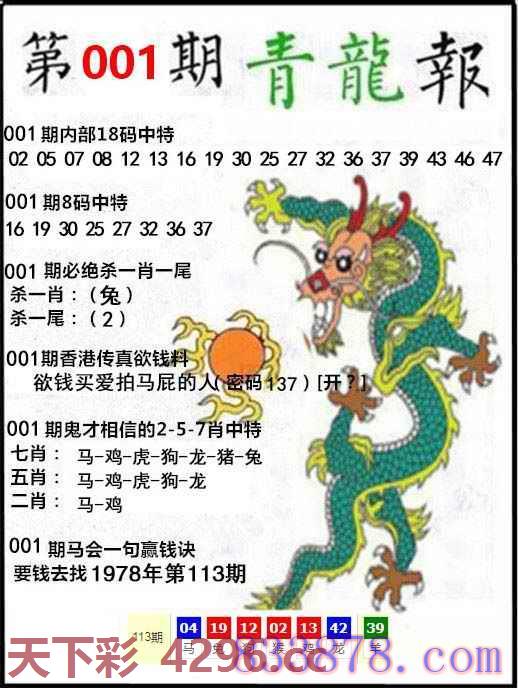 第001期青龍報
001期内部18码中特
02 05 07 08 12 13 16 19 30 25 27 32 36 37 39 43 46 47
001期8码中特
16 19 30 25 27 32 36 37
001期必绝杀一肖一尾
杀一肖：（兔）
杀一尾：（2）
001期香港传真欲钱料
欲钱买爱拍马屁的人（密码137）[开？]
001期鬼才相信的2-5-7肖中特
七肖： 马-鸡-虎-狗-龙-猪-兔
五肖： 马-鸡-虎-狗-龙
二肖： 马-鸡
001期马会一句赢钱诀
要钱去找1978年第113期
113期 04 19 12 02 13 42 39
马 兔 狗 猴 鸡 龙 羊
天下彩 4296.cc